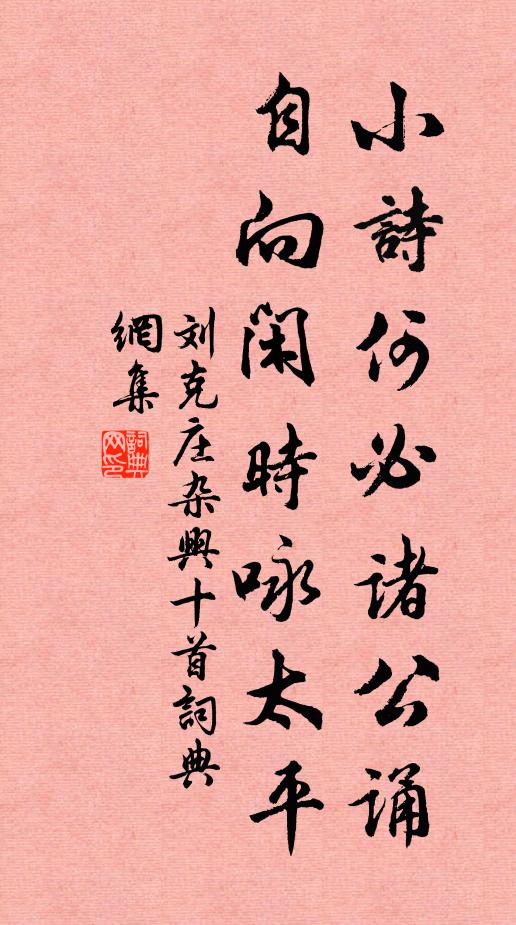 小詩何必諸公誦
自向閑時咏太平
刘克庄杂興十首詞典
網集
詞典網印